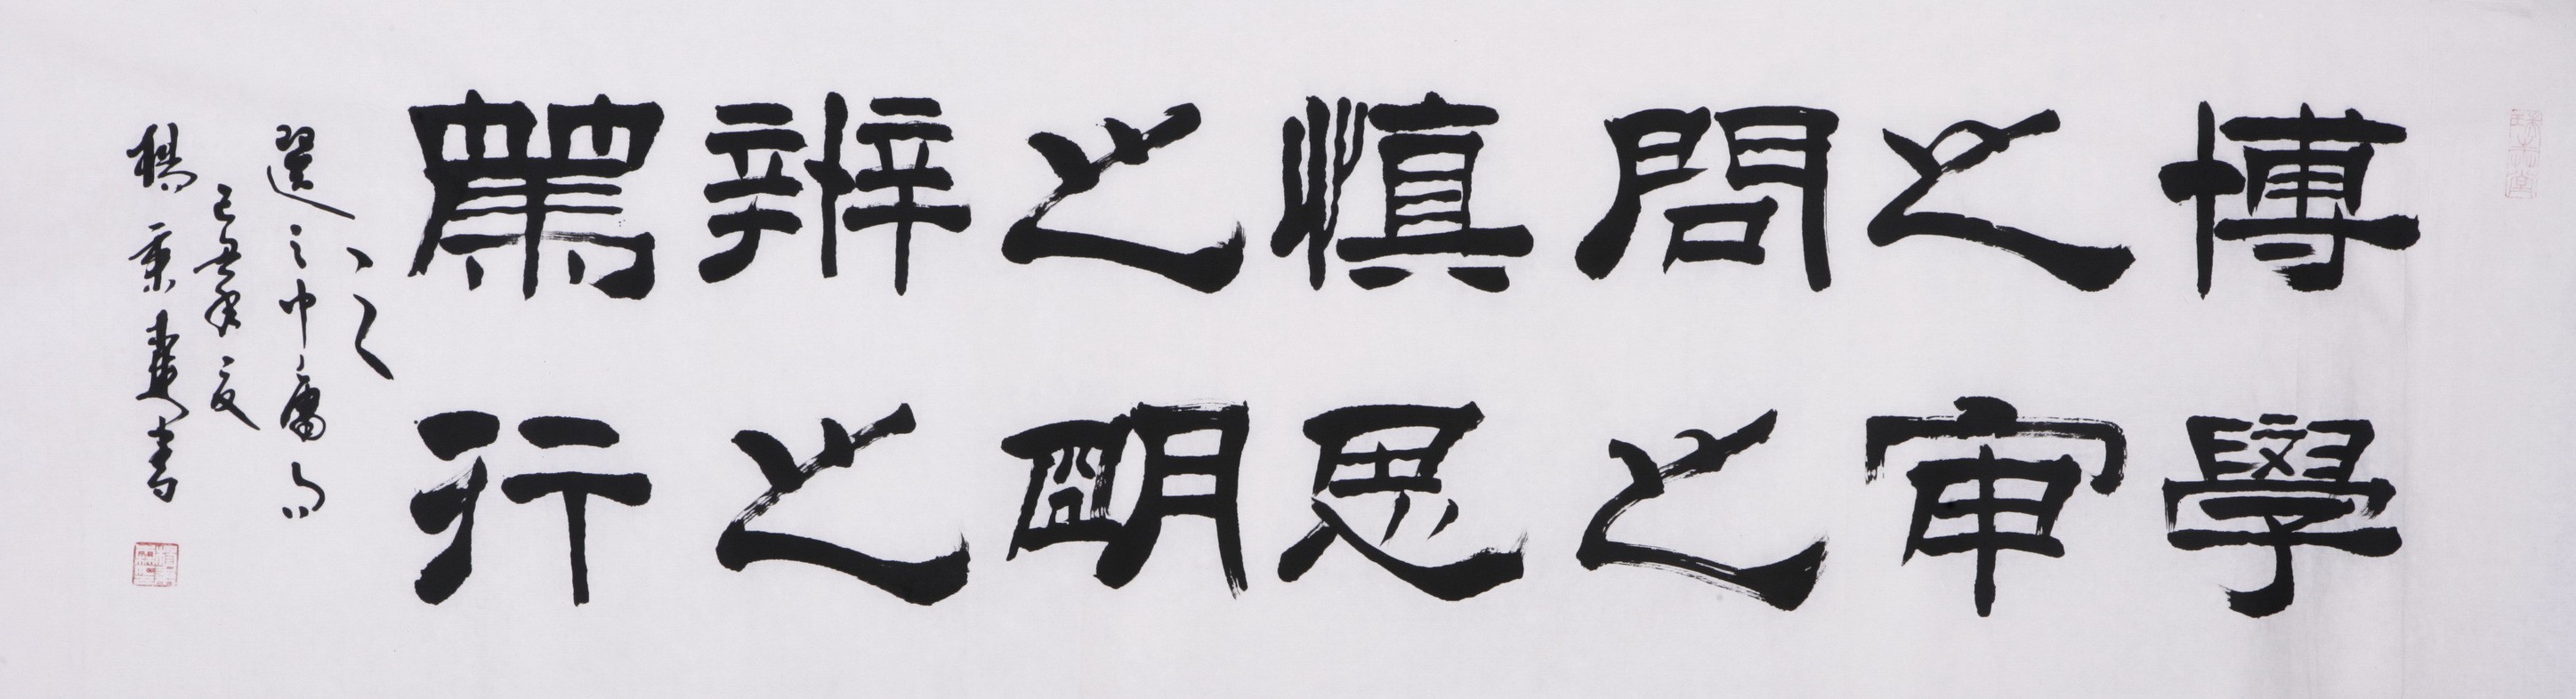 博學
之審
問之
慎思
之明
辨之
篤行
之
選之中庸句
己丑年夏
楊秉書